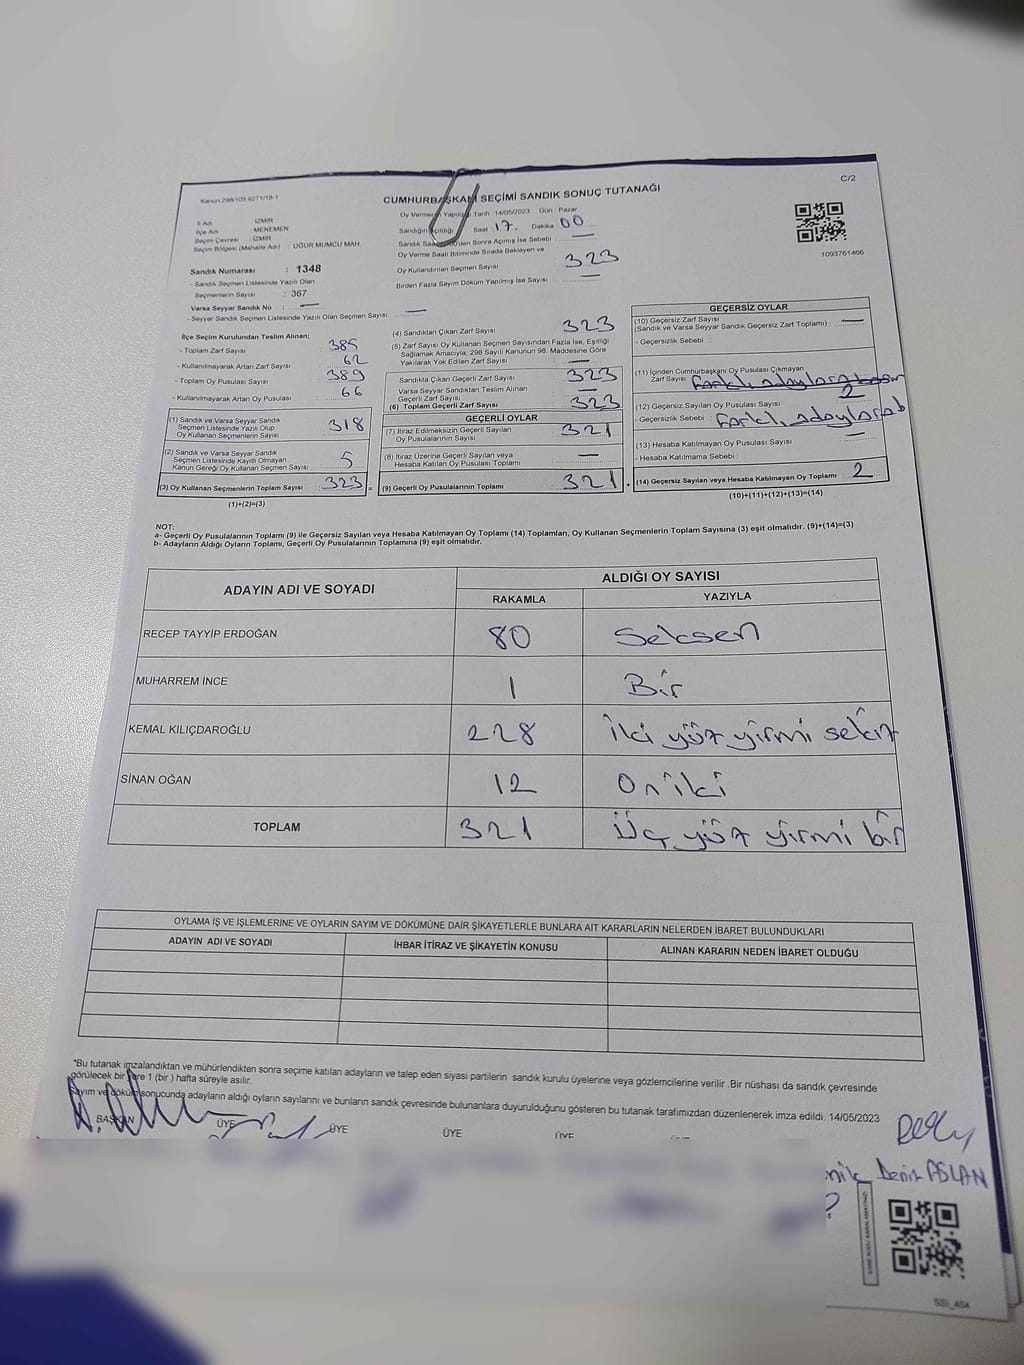 C/2
CUMHURBAŞKANI SEÇİMİ SANDIK SONUÇ TUTANAĞI
1093761466
İl Adı : İZMİR
İlçe Adı : MENEMEN
Seçim Çevresi : İZMİR
Seçim Bölgesi (Mahalle Adı) : UĞUR MUMCU MAH.
Sandık Numarası : 1348
- Sandık Seçmen Listesinde Yazılı Olan
Seçmenlerin Sayısı : 367
Varsa Seyyar Sandık No : —
- Seyyar Sandık Seçmen Listesinde Yazılı Olan Seçmen Sayısı: —
Oy Vermenin Yapıldığı Tarih :14/05/2023 Gün : Pazar
Sandığın Açıldığı Saat 17. Dakika 00
Sandık Saat Sonra Açımış İse Sebebi : —
Oy Verme Saati Bitiminde Sırada Bekleyen ve
Oy Kullandırılan Seçmen Sayısı 323
Birden Fazla Sayım Döküm Yapılmış İse Sayısı : —
İlçe Seçim Kurulundan Teslim Alınan;
- Toplam Zarf Sayısı : 385
- Kullanılmayarak Artan Zarf Sayısı : 62
- Toplam Oy Pusulası Sayısı : 389
- Kullanılmayarak Artan Oy Pusulası : 66
(1) Sandık ve Varsa Seyyar Sandık
Seçmen Listesinde Yazılı Olup
Oy Kullanan Seçmenlerin Sayısı : 318
(2) Sandık ve Varsa Seyyar Sandık
Seçmen Listesinde Kayıtlı Olmayan
Kanun Gereği Oy Kullanan Seçmen Sayısı : 5
(3) Oy Kullanan Seçmenlerin Toplam Sayısı : 323 =
(1)+(2)=(3)
(4) Sandıktan Çıkan Zarf Sayısı : 323
(5) Zarf Sayısı Oy Kullanan Seçmen Sayısından Fazla İse, Eşitliği
Sağlamak Amacıyla; 298 Sayılı Kanunun 98. Maddesine Göre
Yakılarak Yok Edilen Zarf Sayısı : —
Sandıkta Çıkan Geçerli Zarf Sayısı : 323
Varsa Seyyar Sandıktan Teslim Alınan
Geçerli Zarf Sayısı : —
(6) Toplam Geçerli Zarf Sayısı : 323
GEÇERLİ OYLAR
(7) İtiraz Edilmeksizin Geçerli Sayılan
Oy Pusulalarının Sayısı : 321
(8) İtiraz Üzerine Geçerli Sayılan veya
Hesaba Katılan Oy Pusulası Toplamı : —
(9) Geçerli Oy Pusulalarının Toplamı : 321
GEÇERSİZ OYLAR
(10) Geçersiz Zarf Sayısı
(Sandık ve Varsa Seyyar Sandık Geçersiz Zarf Toplamı) : —
- Geçersizlik Sebebi :
(11) İçinden Cumhurbaşkanı Oy Pusulası Çıkmayan
Zarf Sayısı :
(12) Geçersiz Sayılan Oy Pusulası Sayısı : 2
- Geçersizlik Sebebi : Farklı adaylara b
(13) Hesaba Katılmayan Oy Pusulası Sayısı : —
- Hesaba Katılmama Sebebi :
(14) Geçersiz Sayılan veya Hesaba Katılmayan Oy Toplamı : 2
(10)+(11)+(12)+(13)=(14)
NOT:
a- Geçerli Oy Pusulalarının Toplamı (9) ile Geçersiz Sayılan veya Hesaba Katılmayan Oy Toplamı (14) Toplamları, Oy Kullanan Seçmenlerin Toplam Sayısına (3) eşit olmalıdır. (9)+(14)=(3)
b- Adayların Aldığı Oyların Toplamı, Geçerli Oy Pusulalarının Toplamına (9) eşit olmalıdır.
ADAYIN ADI VE SOYADI
ALDIĞI OY SAYISI
RAKAMLA YAZIYLA
RECEP TAYYİP ERDOĞAN 80 Seksen
MUHARREM İNCE 1 Bir
KEMAL KILIÇDAROĞLU 228 İki yüz yirmi sekiz
SİNAN OĞAN 12 On iki
TOPLAM 321 Üç yüz yirmi bir
OYLAMA İŞ VE İŞLEMLERİNE VE OYLARIN SAYIM VE DÖKÜMÜNE DAİR ŞİKAYETLERLE BUNLARA AİT KARARLARIN NELERDEN İBARET BULUNDUKLARI
ADAYIN ADI VE SOYADI İHBAR İTİRAZ VE ŞİKAYETİN KONUSU ALINAN KARARIN NEDEN İBARET OLDUĞU
*Bu tutanak imzalandıktan ve mühürlendikten sonra seçime katılan adayların ve talep eden siyasi partilerin sandık kurulu üyelerine veya gözlemcilerine verilir .Bir nüshası da sandık çevresinde
görülecek bir yere 1 (bir ) hafta süreyle asılır.
Sayım ve döküm sonucunda adayların aldığı oyların sayılarını ve bunların sandık çevresinde bulunanlara duyurulduğunu gösteren bu tutanak tarafımızdan düzenlenerek imza edildi. 14/05/2023
BAŞKAN ÜYE ÜYE ÜYE ÜYE
Deniz ASLAN
SSI_404